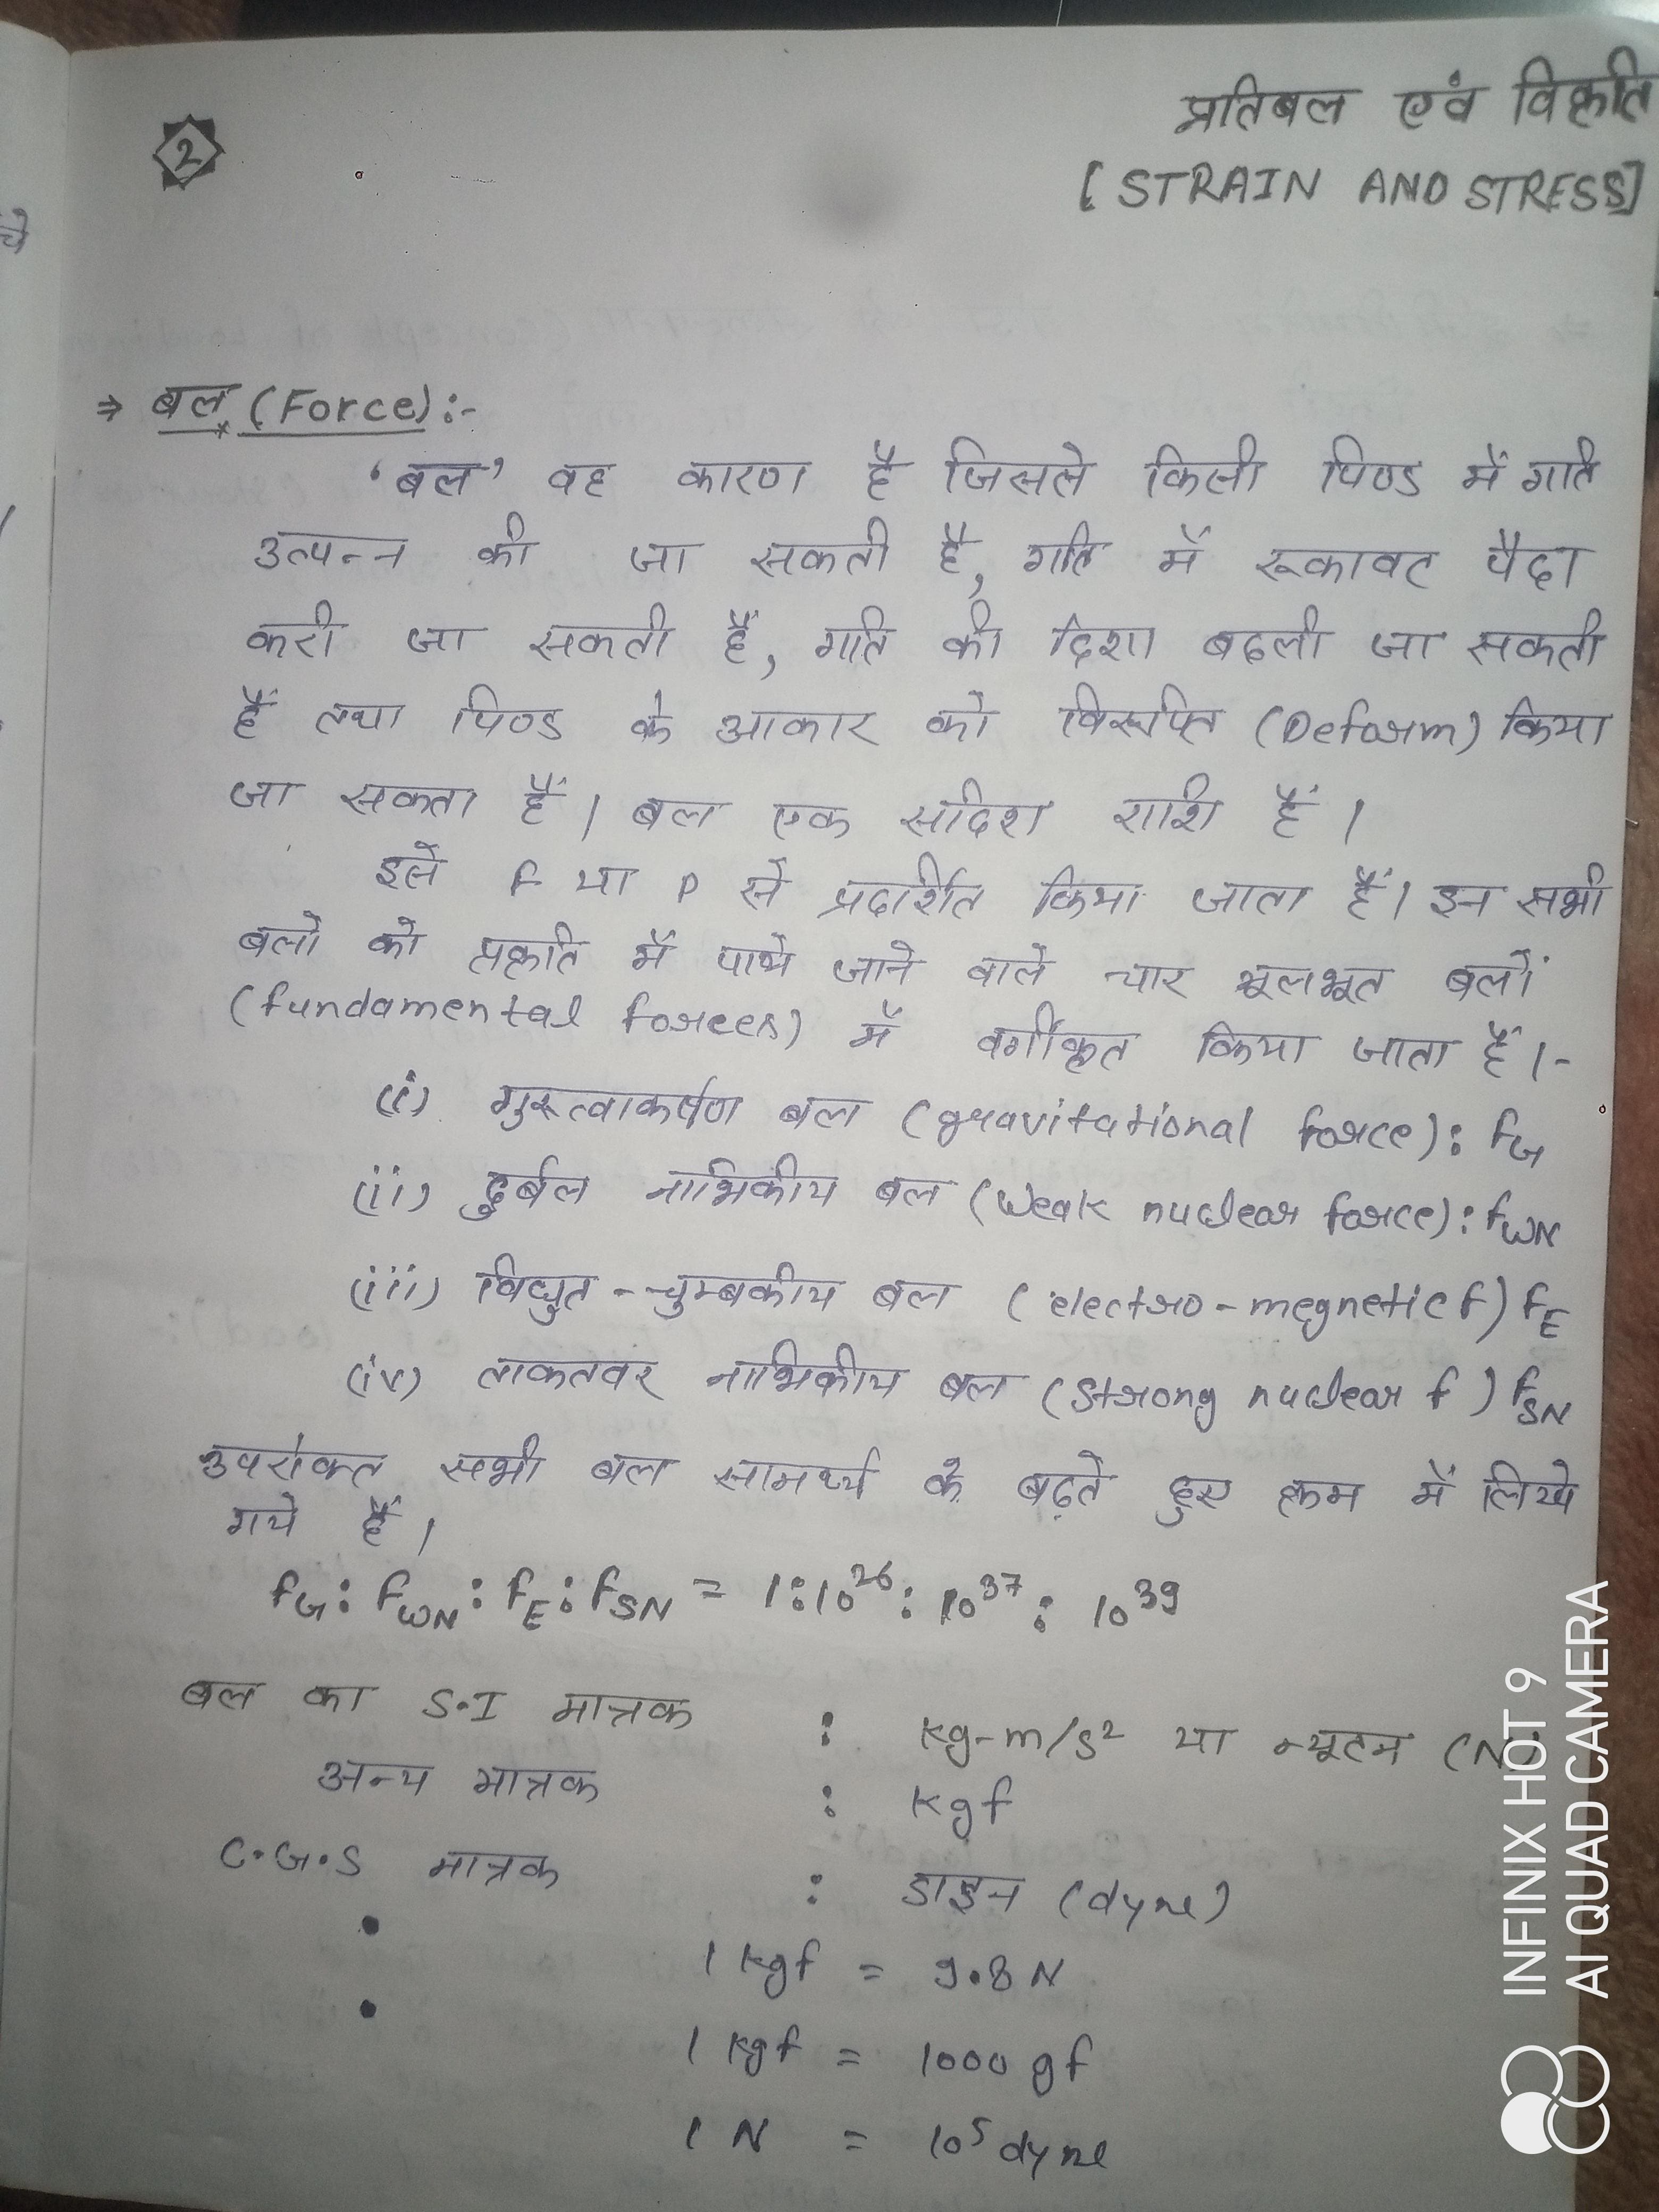 प्रतिबल एवं विकृति
2
[STRAIN AND STRESS]
⇒ बल (Force):-
'बल' वह कारण है जिससे किसी पिण्ड में गति
उत्पन्न की जा सकती है, गति में रूकावट पैदा
करी जा सकती हैं, गति की दिशा बदली जा सकती
हैं तथा पिण्ड के आकार को विरूपित (Deform) किया
जा सकता हैं। बल एक सदिश राशि हैं।
इसे F या P से प्रदर्शित किया जाता हैं। इन सभी
बलो को प्रकृति में पाये जाने वाले चार मूलभूत बलों
(fundamental forces) में वर्गीकृत किया जाता हैं।-
(i) गुरूत्वाकर्षण बल (gravitational force): FG
(ii) दुर्बल नाभिकीय बल (Weak nuclear force): FWN
(iii) विद्युत-चुम्बकीय बल (electro-megnetic f) FE
(iv) ताकतवर नाभिकीय बल (Strong nuclear f) FSN
उपरोक्त सभी बल सामर्थ्य के बढ़ते हुए क्रम में लिखे
गये हैं।
FG : FWN : FE : FSN = 1:10²⁶ : 10³⁷ : 10³⁹
बल का S.I मात्रक : kg-m/s² या न्यूटन (N)
अन्य मात्रक : kgf
C.G.S मात्रक : डाइन (dyne)
• 1 kgf = 9.8 N
• 1 kgf = 1000 gf
1 N = 10⁵ dyne
INFINIX HOT 9
AI QUAD CAMERA